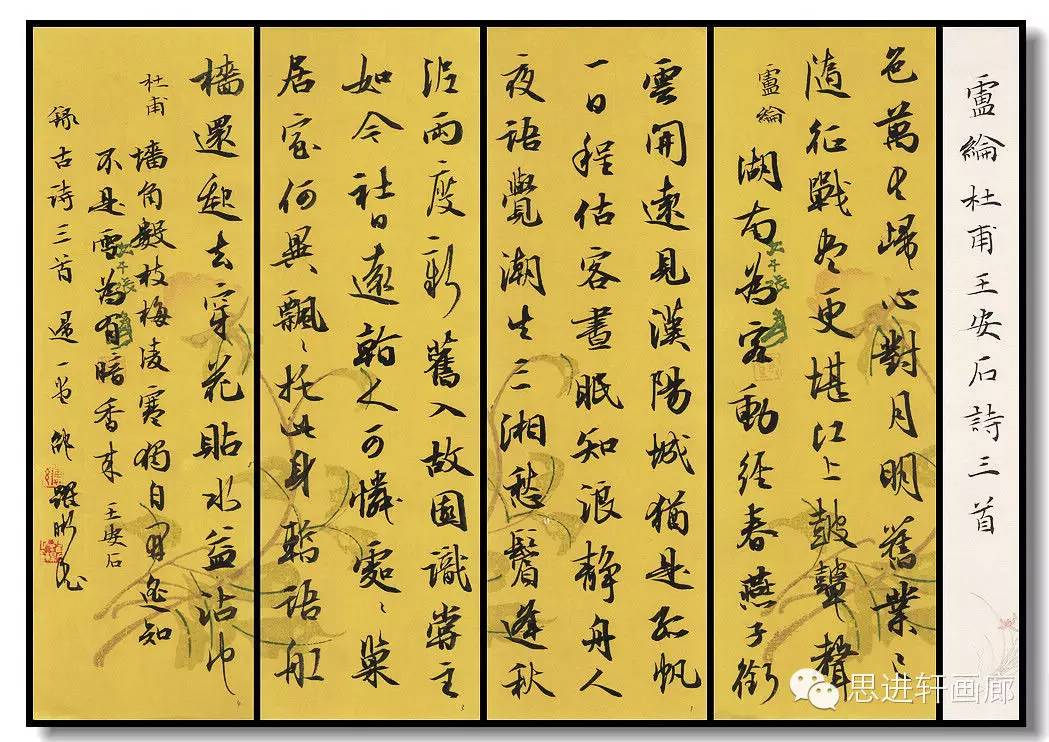 盧綸杜甫王安石詩三首
雲開遠見漢陽城猶是孤帆
一日程估客晝眠知浪静舟人
夜語覺潮生三湘愁鬢逢秋
色萬里歸心對月明舊業已
隨征戰盡更堪江上鼓鼙聲
盧綸 湖南為客動經春燕子銜
泥兩度新舊入故園識嘗主
如今社日遠看人可憐處〻巢
居室何異飄〻托此身暫語船
檣還起去穿花貼水益沾巾
杜甫 墻角數枝梅凌寒獨自開遙知
不是雪為有暗香來 王安石
錄古詩三首
思进轩画廊